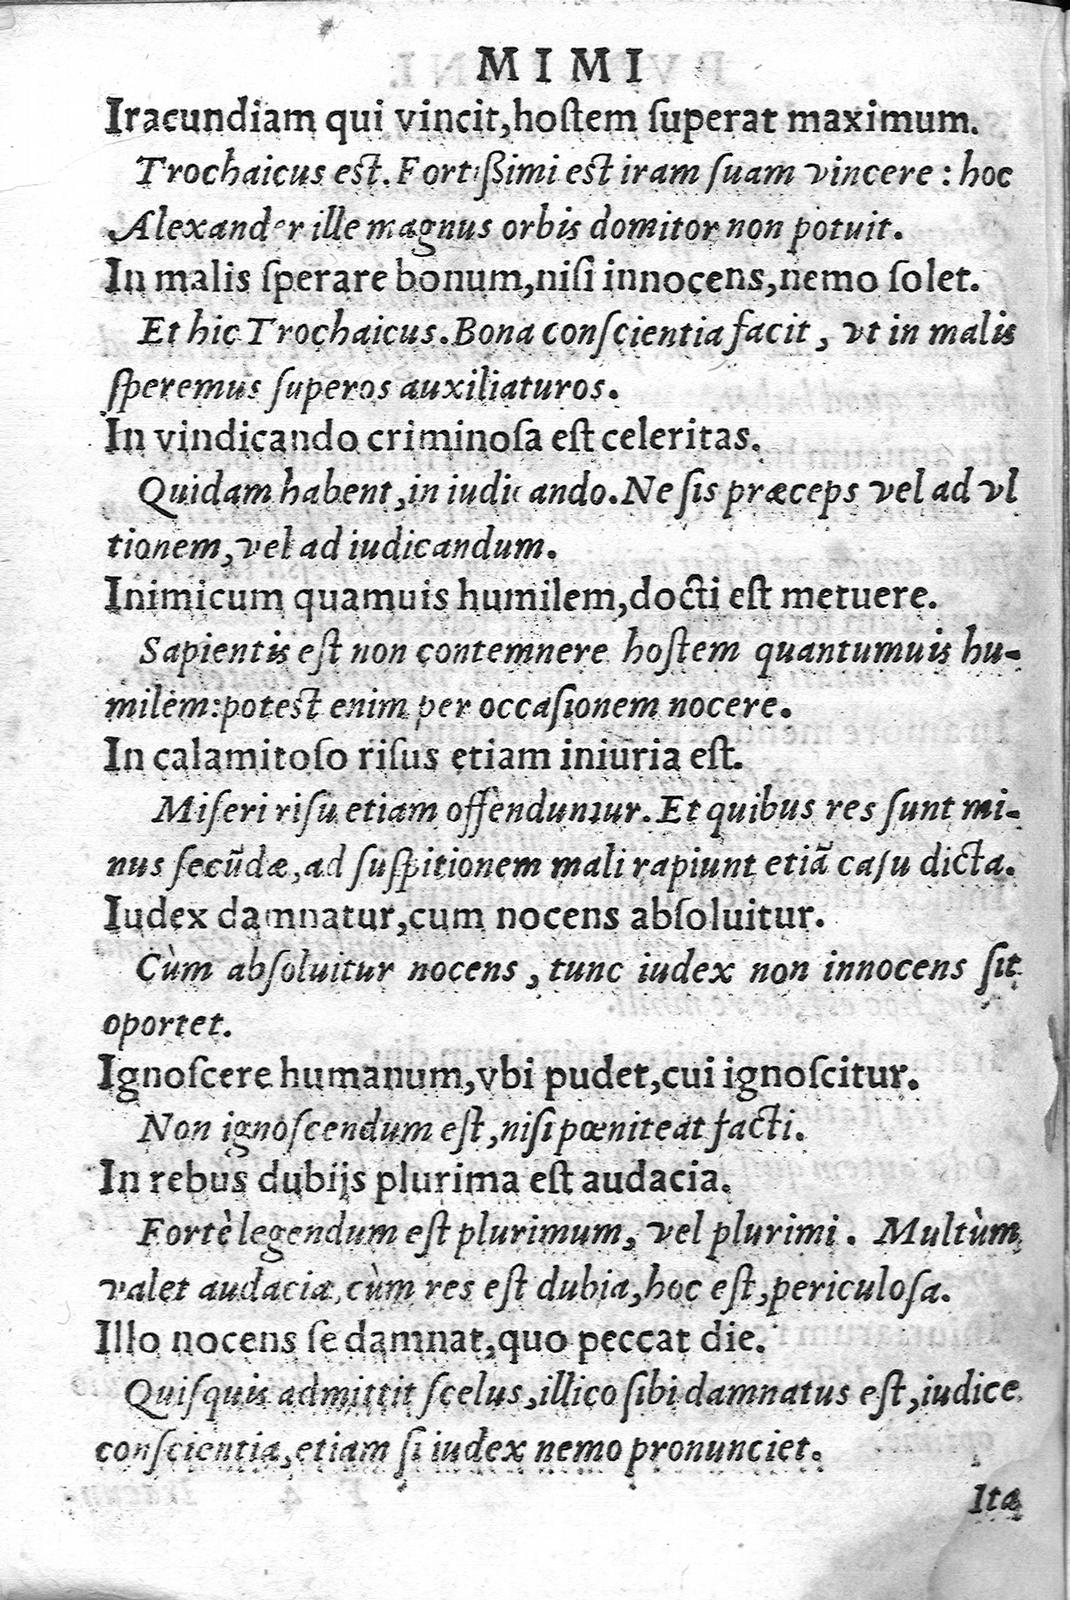 MIMI
Iracundiam qui vincit,hoſtem ſuperat maximum.
Trochaicus est. Fortißimi est iram ſuam vincere : hoc
Alexander ille magnus orbis domitor non potuit.
In malis ſperare bonum,niſi innocens,nemo ſolet.
Et hic Trochaicus. Bona conſcientia facit , vt in malis
ſperemus ſuperos auxiliaturos.
In vindicando criminoſa eſt celeritas.
Quidam habent,in iudicando. Ne ſis præceps vel ad vl
tionem,vel ad iudicandum.
Inimicum quamuis humilem,docti eſt metuere.
Sapientis eſt non contemnere hoſtem quantumuis hu-
milem:potest enim per occaſionem nocere.
In calamitoſo riſus etiam iniuria eſt.
Miſeri riſu etiam offenduntur. Et quibus res ſunt mi-
nus ſecũdæ,ad ſuſpitionem mali rapiunt etiã caſu dicta.
Iudex damnatur,cum nocens abſoluitur.
Cùm abſoluitur nocens , tunc iudex non innocens ſit
oportet.
Ignoſcere humanum,vbi pudet,cui ignoſcitur.
Non ignoſcendum eſt,niſi pœniteat facti.
In rebus dubijs plurima eſt audacia.
Fortè legendum eſt plurimum, vel plurimi. Multùm
valet audacia,cùm res eſt dubia,hoc eſt,periculoſa.
Illo nocens ſe damnat,quo peccat die.
Quiſquis admittit ſcelus,illico ſibi damnatus eſt,iudice
conſcientia,etiam ſi iudex nemo pronunciet.
Ita